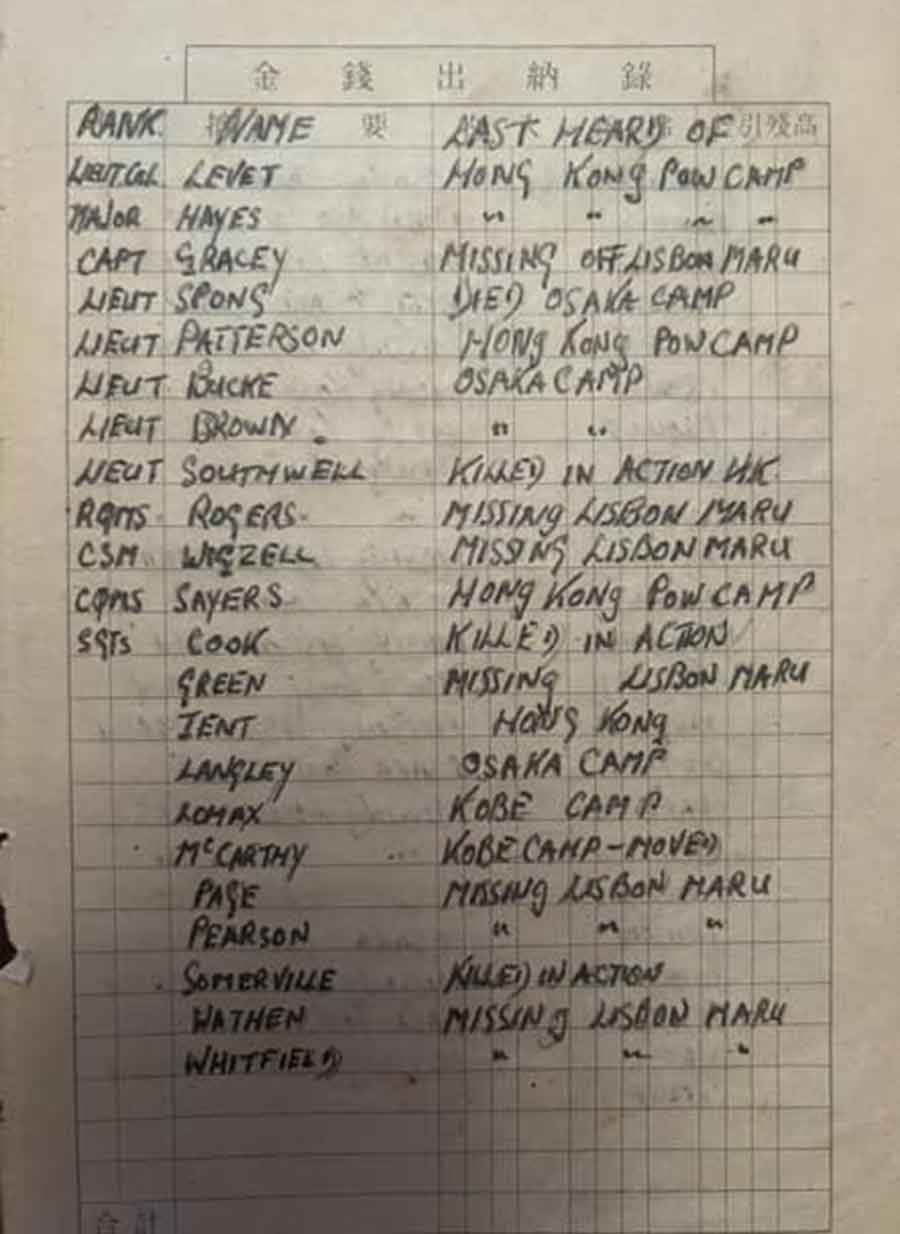 金錢出納錄
RANK. NAME 要 LAST HEARD OF 引残高
LIEUT.COL. LEVET HONG KONG POW CAMP
MAJOR HAYES " " " "
CAPT GRACEY MISSING OFF LISBON MARU
LIEUT SPONG DIED OSAKA CAMP
LIEUT PATTERSON HONG KONG POW CAMP
LIEUT BUCKE OSAKA CAMP
LIEUT BROWN. " "
LIEUT SOUTHWELL KILLED IN ACTION H.K.
RQMS ROGERS. MISSING LISBON MARU
CSM WIGZELL MISSING LISBON MARU
CQMS SAYERS HONG KONG POW CAMP
SGTS COOK KILLED IN ACTION
GREEN MISSING LISBON MARU
IENT HONG KONG
LANGLEY OSAKA CAMP
LOMAX KOBE CAMP.
McCARTHY KOBE CAMP - MOVED
PAGE MISSING LISBON MARU
PEARSON " " "
SOMERVILLE KILLED IN ACTION
WATHEN MISSING LISBON MARU
WHITFIELD " " "
合計